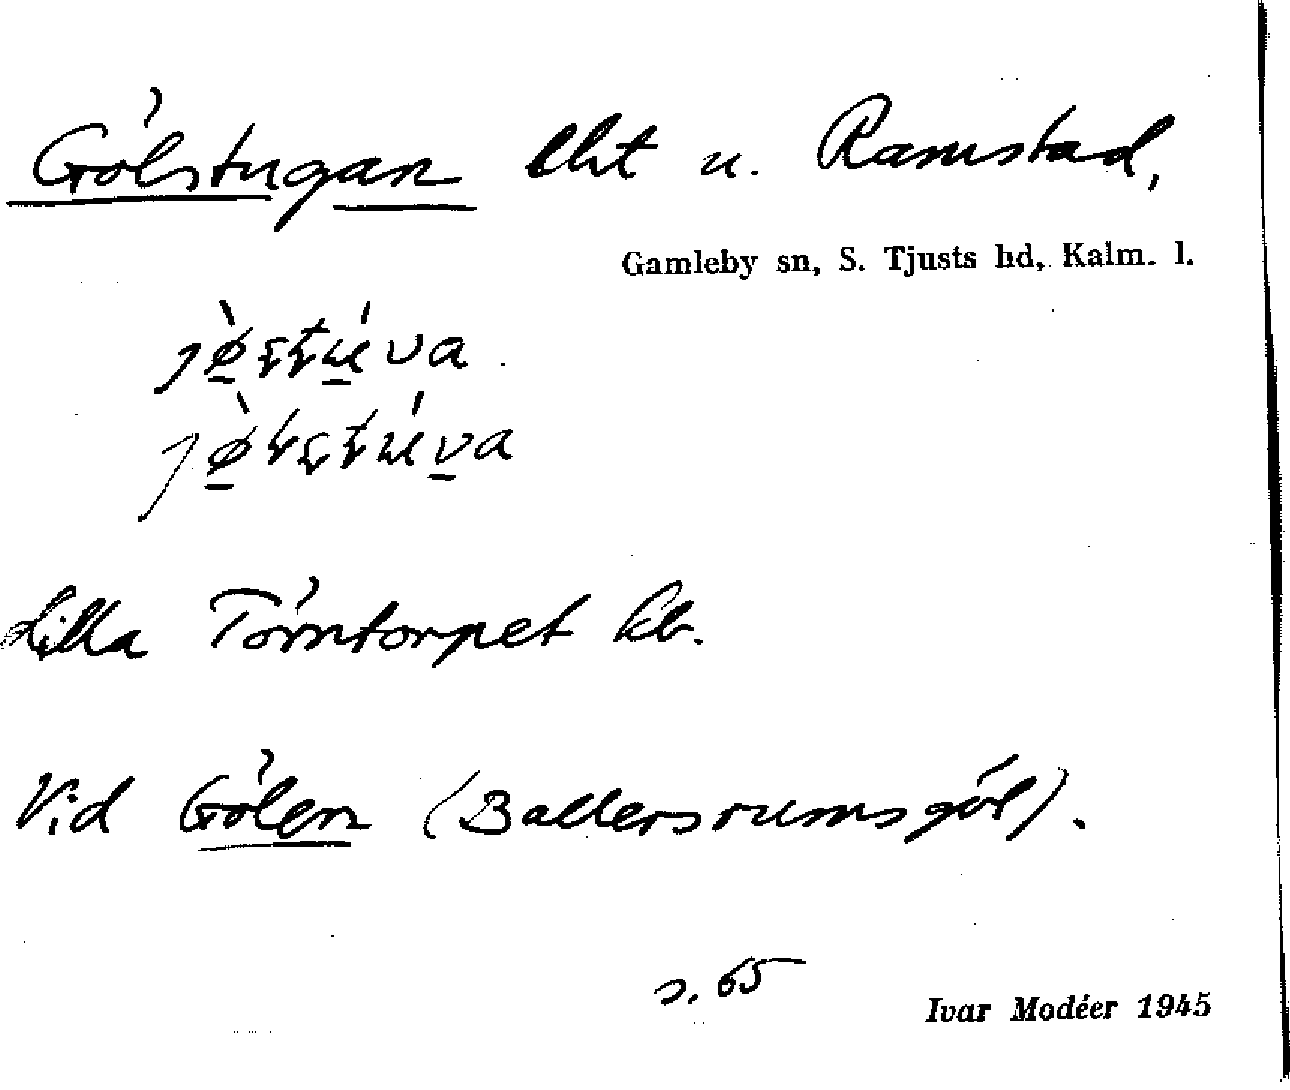 Gölstugan lht u. Ramstad,
Gamleby sn, S. Tjusts hd, Kalm. l.
Lilla Törntorpet kb.
Vid Gölen (Ballersrumsgöl).
s. 65
Ivar Modéer 1945